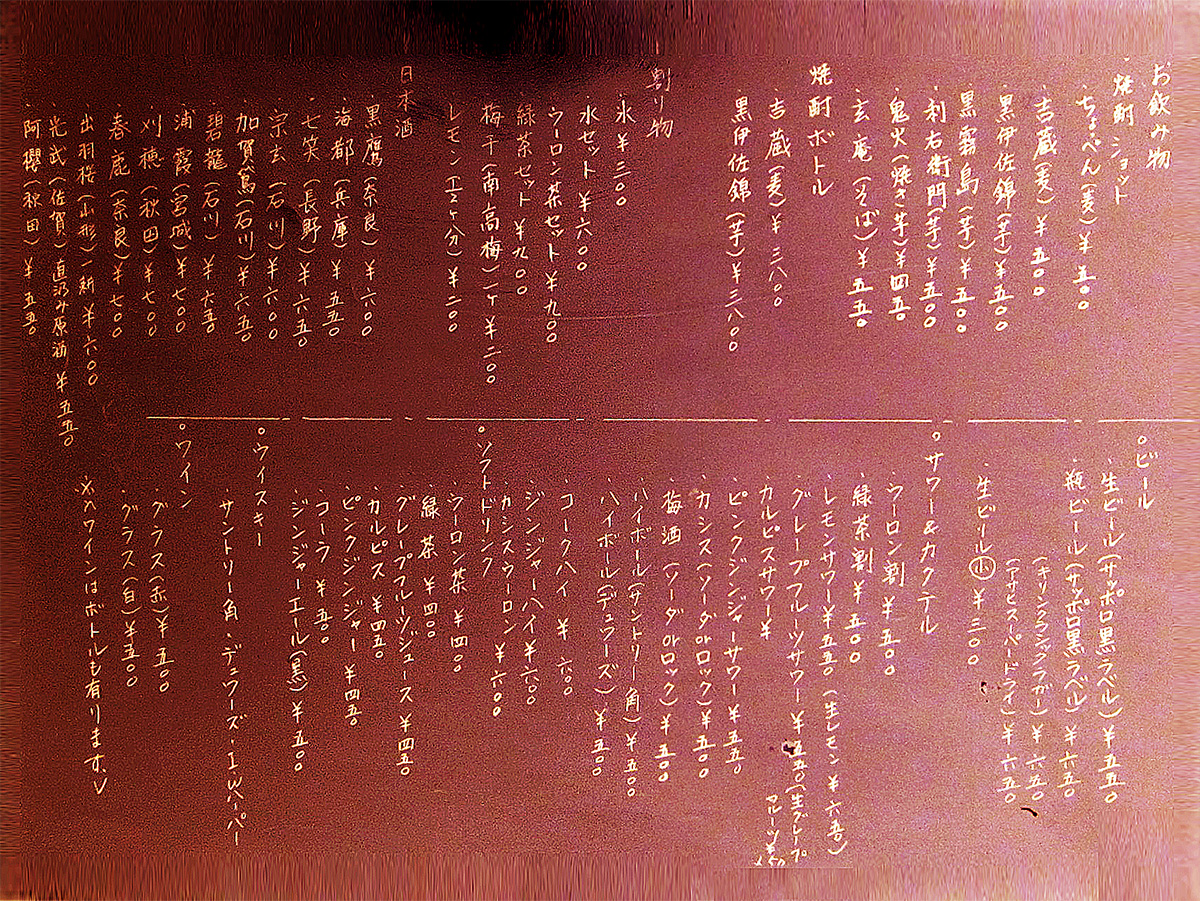 お飲み物
・焼酎 ショット
・ちょんぺん(麦)¥五〇〇
・吉蔵(麦)¥五〇〇
・黒伊佐錦(芋)¥五〇〇
・黒霧島(芋)¥五〇〇
・利右衛門(芋)¥五〇〇
・鬼火(焼き芋)¥四五〇
・玄庵(そば)¥五五〇
焼酎ボトル
・吉蔵(麦)¥三八〇〇
黒伊佐錦(芋)¥三八〇〇
割り物
・氷¥三〇〇
水セット¥六〇〇
ウーロン茶セット¥九〇〇
緑茶セット¥九〇〇
梅干(南高梅)一ヶ¥二〇〇
レモン(1/2ヶ分)¥二〇〇
日本酒
・黒鷹(奈良)¥六〇〇
・海都(兵庫)¥五五〇
・七笑(長野)¥六五〇
・宗玄(石川)¥六〇〇
・加賀鳶(石川)¥六五〇
・碧龍(石川)¥六五〇
・浦霞(宮城)¥七〇〇
・刈穂(秋田)¥七〇〇
・春鹿(奈良)¥七〇〇
・出羽桜(山形)一耕¥六〇〇
・光武(佐賀)直汲み原酒¥五五〇
・阿櫻(秋田)¥五五〇
○ビール
・生ビール(サッポロ黒ラベル)¥五五〇
・瓶ビール(サッポロ黒ラベル)¥六五〇
(キリンクラシックラガー)¥六五〇
(アサヒスーパードライ)¥六五〇
・生ビール小¥三〇〇
○サワー&カクテル
・ウーロン割¥五〇〇
・緑茶割¥五〇〇
・レモンサワー¥五五〇(生レモン¥六五〇)
・グレープフルーツサワー¥五五〇(生グレープフルーツ¥
カルピスサワー¥
・ピンクジンジャーサワー¥五五〇
・カシス(ソーダorロック)¥五〇〇
・梅酒(ソーダorロック)¥五〇〇
・ハイボール(サントリー角)¥五〇〇
・ハイボール(デュワーズ)¥五〇〇
・コークハイ¥六〇〇
・ジンジャーハイ¥六〇〇
・カシスウーロン¥六〇〇
○ソフトドリンク
・ウーロン茶¥四〇〇
・緑茶¥四〇〇
・グレープフルーツジュース¥四五〇
・カルピス¥四五〇
・ピンクジンジャー¥四五〇
・コーラ¥五〇〇
・ジンジャーエール(黒)¥五〇〇
○ウイスキー
サントリー角・デュワーズ・I.W.ハーパー
○ワイン
・グラス(赤)¥五〇〇
・グラス(白)¥五〇〇
※ワインはボトルも有ります。